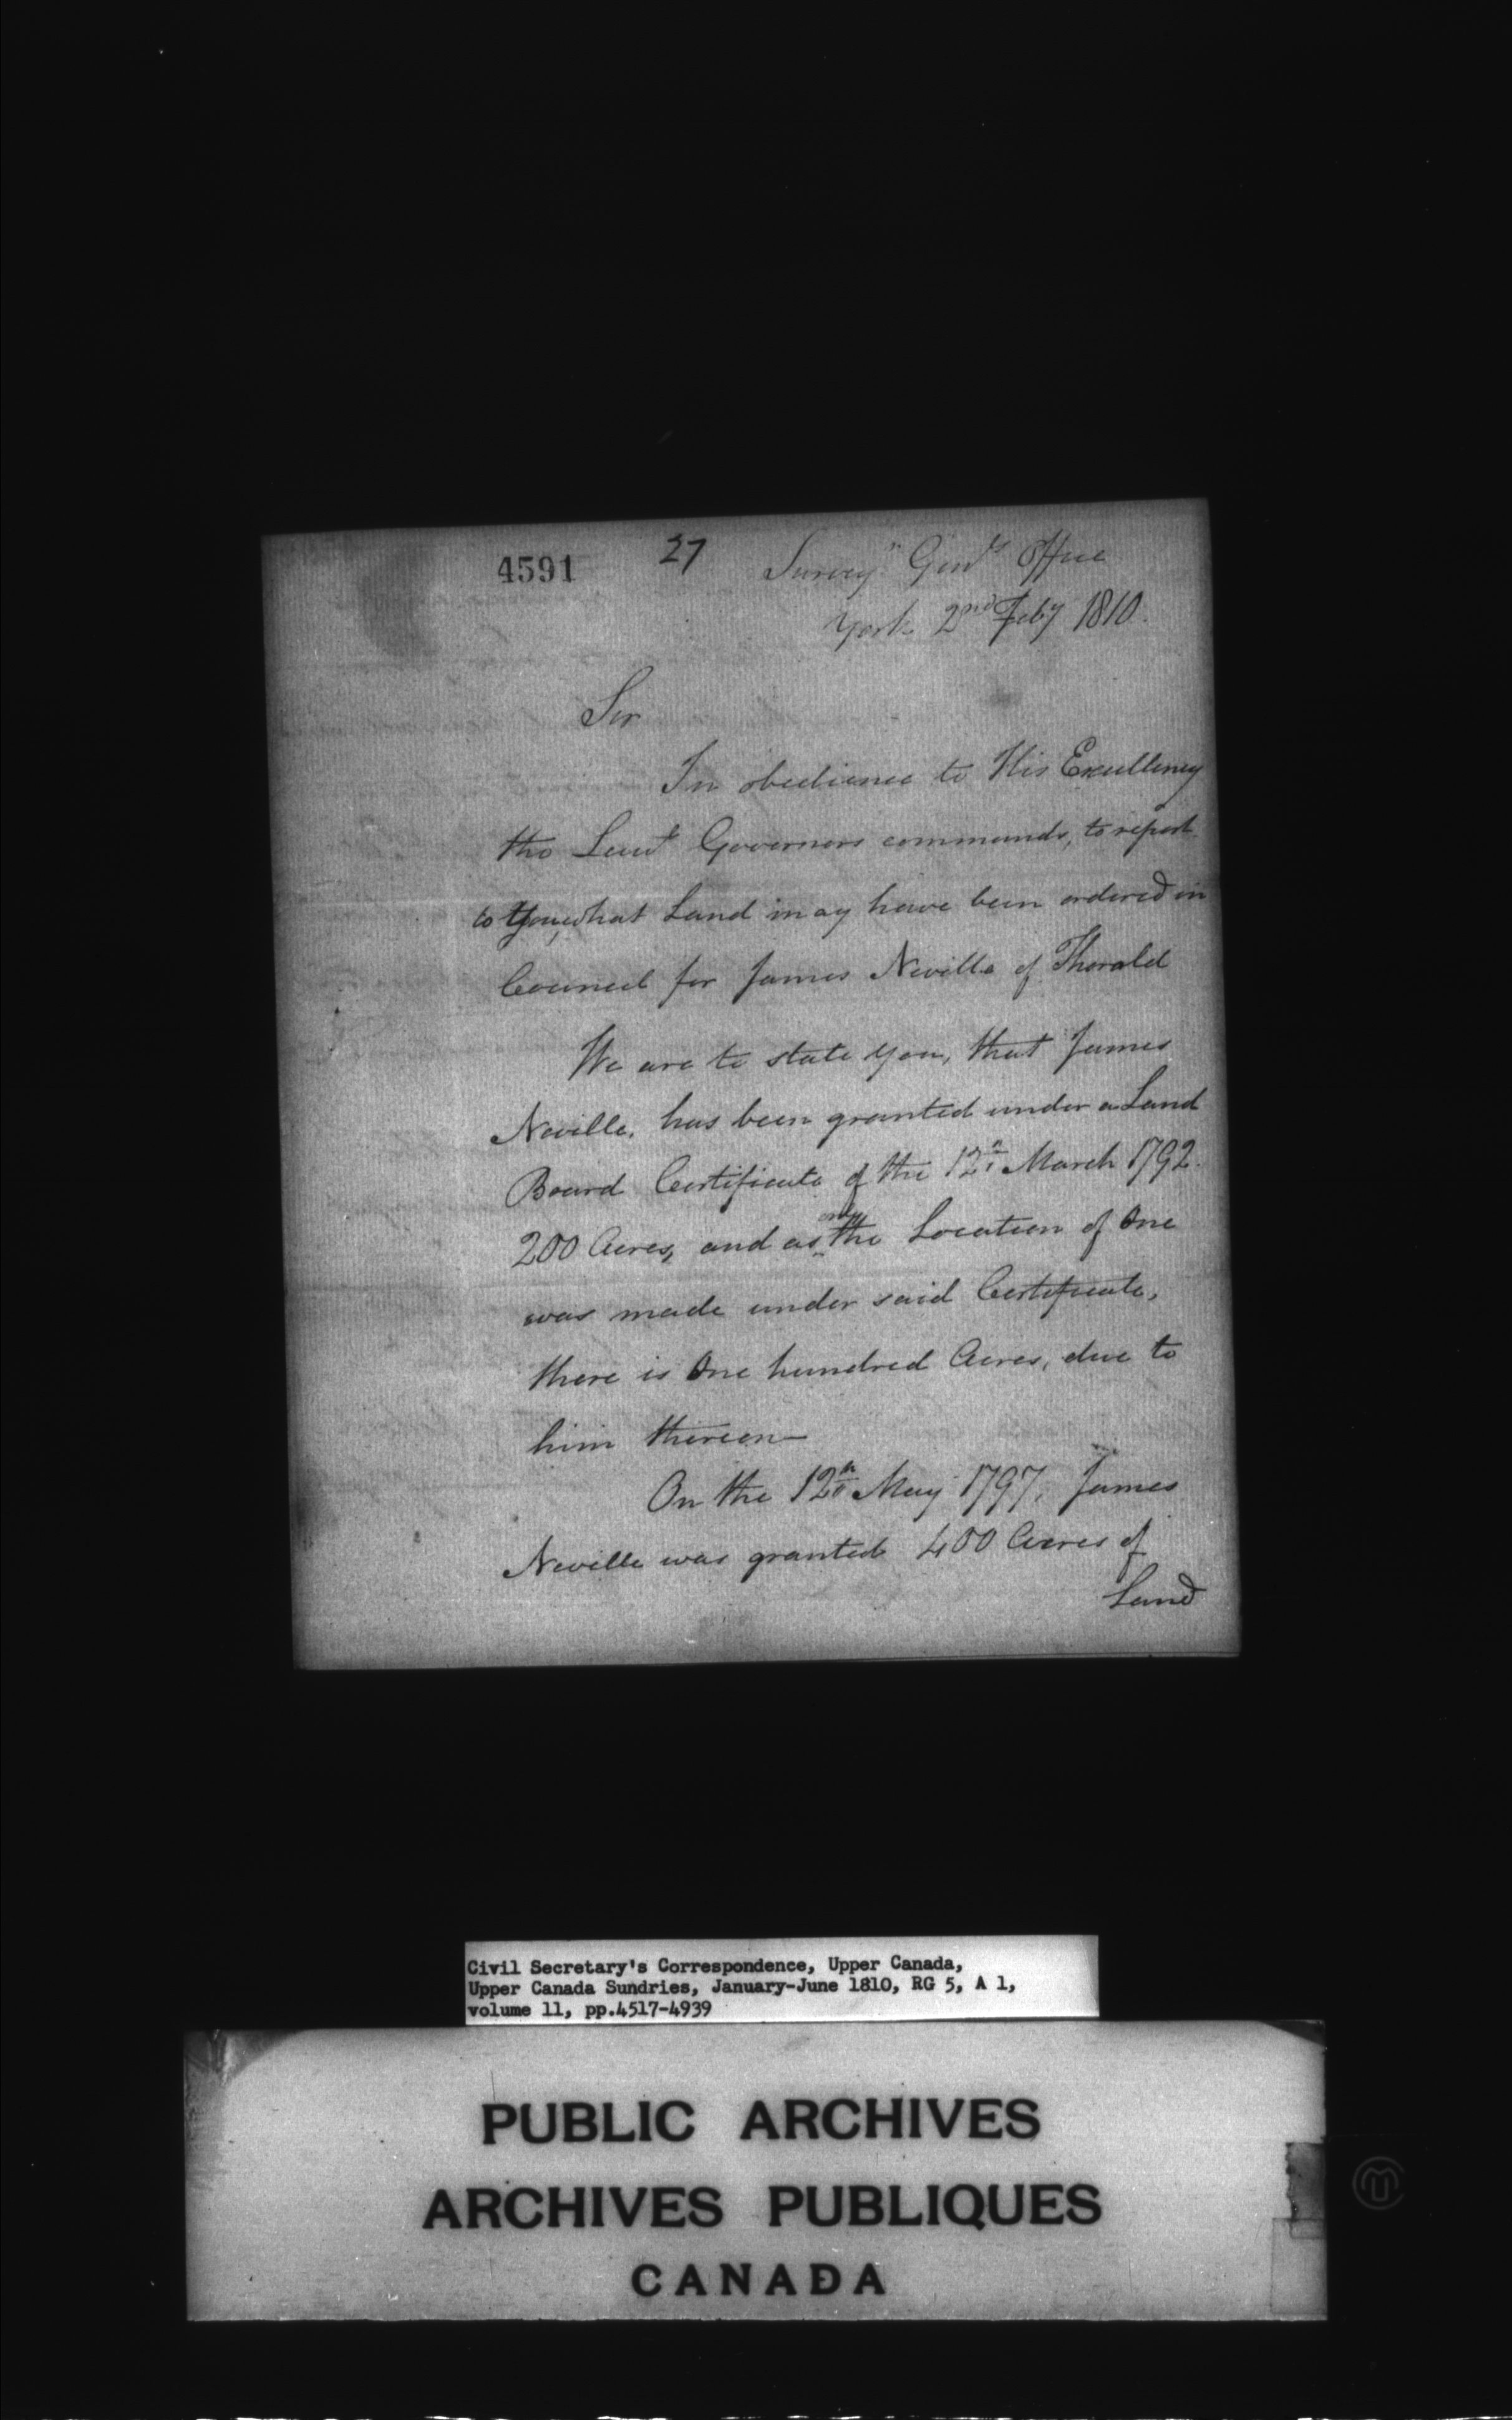 4591 27 Survey.r Gen.ls Office
York 2nd Feby 1810.
Sir
In obedience to His Excellency
the Lieut Governors commands, to report
to You, what Land may have been ordered in
Council for James Neville of Thorold
We are to state you, that James
Neville, has been granted under a Land
Board Certificate of the 12th March 1792
200 Acres, and as only the Location of One
was made under said Certificate,
there is One hundred Acres, due to
him thereon—
On the 12th May 1797, James
Neville was granted 400 Acres of
Land
Civil Secretary's Correspondence, Upper Canada,
Upper Canada Sundries, January-June 1810, RG 5, A 1,
volume 11, pp.4517-4939
PUBLIC ARCHIVES
ARCHIVES PUBLIQUES
CANADA